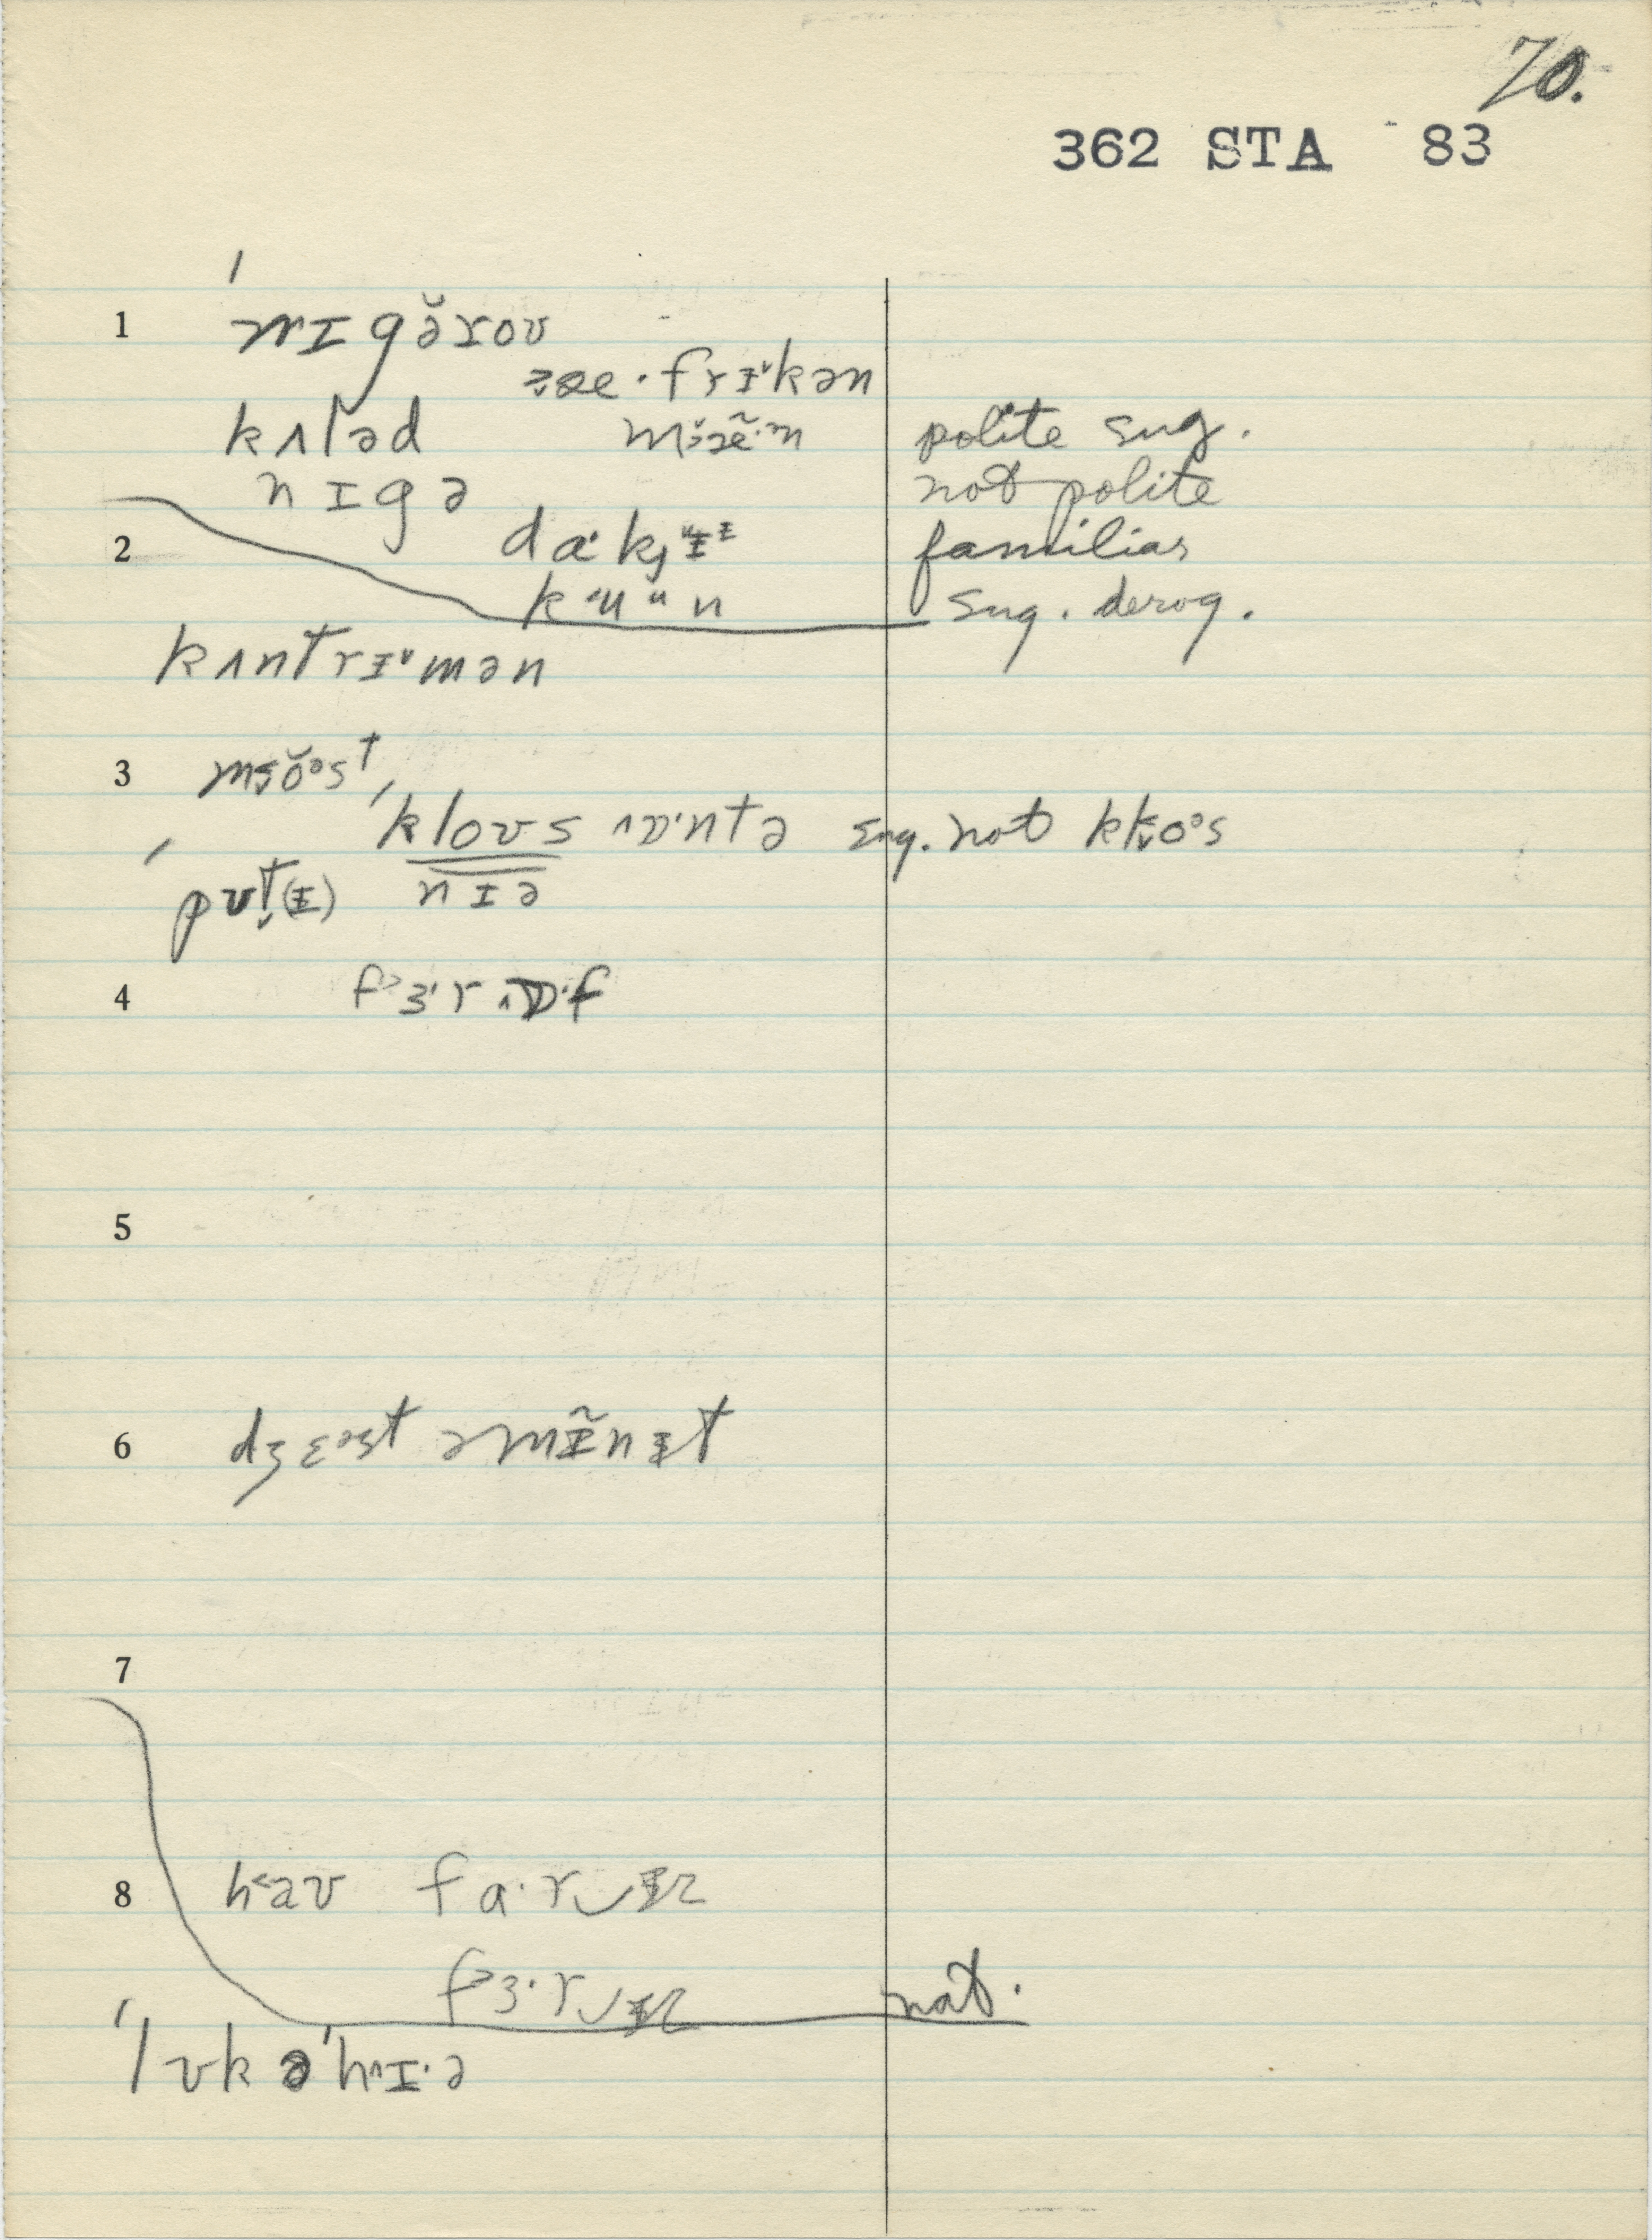 70.
362 STA 83
1 ˈnɪgə̆roʊ
æ·frɨ˅kən
kʌləd mɜæ̃·n polite sug.
nɪgə not polite
2 dɑ·kɨ familiar
kʉun sug. derog.
kʌntrɨ˅mən
3 mŏəst
ˈkloʊs ɒ·ntə sug. not klo˅əs
ˈpʊt̬(ɨ) nɪə
4 f˃ɜ·r ɒ·f
5
6 dʒɛəst əmɨ̃nɨt
7
8 h˂aʊ fɑ·r‿ɨz
f˃ɜ·r‿ɨz nat.
ˈlʊk əˈhɪ·ə